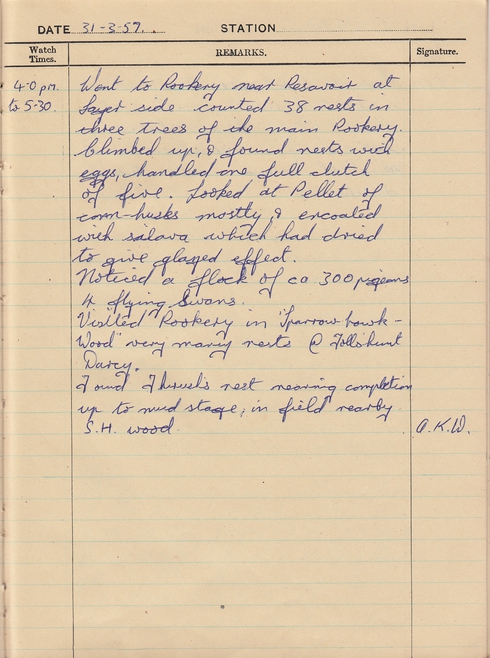 DATE 31-3-57. . STATION
Watch Times. REMARKS. Signature.
4.0 pm. Went to Rookery near Resavoir at
to 5-30. Layer side counted 38 nests in
three trees of the main Rookery.
Climbed up, & found nests with
eggs, handled one full clutch
of five. Looked at Pellet of
corn-husks mostly, & encoated
with salava which had dried
to give glazed effect.
Noticed a flock of ca 300 pigeons
4 flying Swans.
Visited Rookery in 'Sparrow hawk-
Wood' very many nests @ Tolleshunt
Darcy.
Found Thrush's nest nearing completion
up to mud stage, in field nearby
S.H. wood A.K.W.